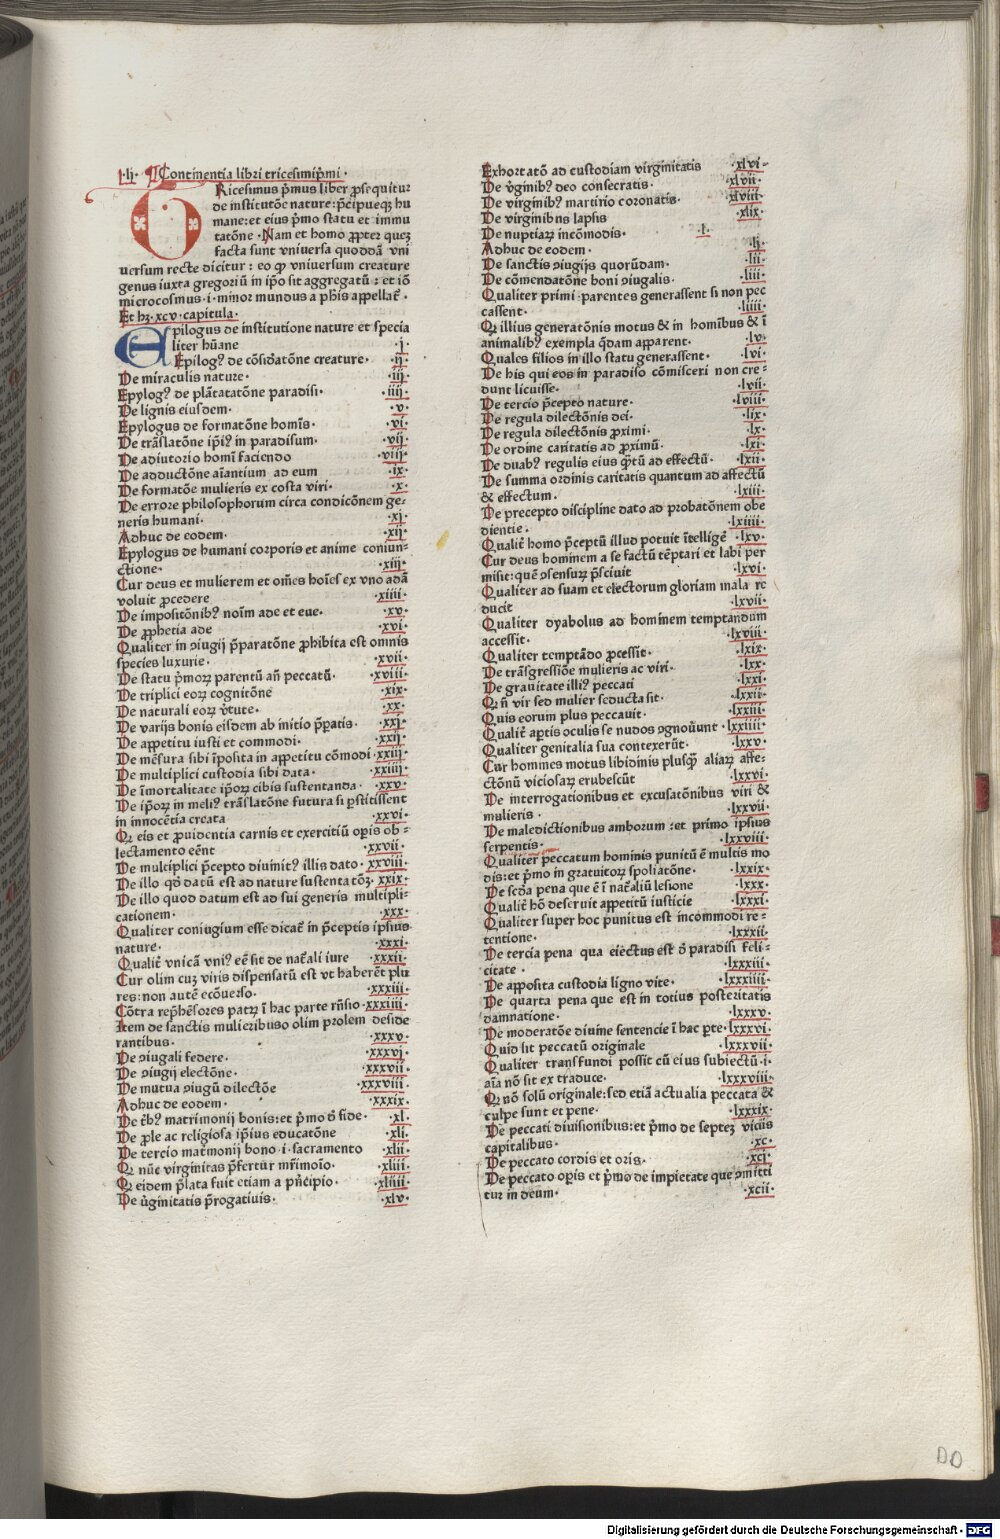 ·lj· ¶Continentia libri tricesimip̃mi ·
TRicesimus p̃mus liber ꝓsequitur
de institutõe nature: p̃cipueqꝫ hu
mane: et eius p̃mo statu et immu
tatõne · Nam et homo ꝓpter queꝫ
facta sunt vniversa quoddã vni
uersum recte dicitur : eo ꝙ vniuersum creature
genus iuxta gregoriũ in ip̃o sit aggregatũ : et iõ
microcosmus · i · minor mundus a phis appellat̃ ·
Et hꝫ · xcv · capitula ·
EPilogus de institutione nature et specia
liter hũane ·j·
Epilogꝰ de cõsid̃atõne creature · ·ij·
De miraculis nature · ·iij·
Epylogꝰ de plãtatatõne paradisi · ·iiij·
De lignis eiusdem · ·v·
Epylogus de formatõne homĩs · ·vi·
De trãslatõne ip̃iꝰ in paradisum · ·vij·
De adiutorio homĩ faciendo ·viij·
De adductõne aĩantium ad eum ·ix·
De formatõe mulieris ex costa viri · ·x·
De errore philosophorum circa condicõnem ge-
neris humani · ·xj·
Adhuc de eodem · ·xij·
Epylogus de humani corporis et anime coniun-
ctione · ·xiij·
Cur deus et mulierem et om̃es hoĩes ex vno adã
voluit ꝓcedere ·xiiii·
De impositõnibꝰ noĩm ade et eue · ·xv·
De ꝓphetia ade ·xvi·
Qualiter in ɔiugij p̃paratõne ꝓhibita est omnis
species luxurie · ·xvii·
De statu p̃morꝝ parentũ añ peccatũ · ·xviii·
De triplici eorꝝ cognitõne ·xix·
De naturali eorꝝ v̓tute · ·xx·
De varijs bonis eisdem ab initio p̃ꝑatis · ·xxj·
De appetitu iusti et commodi · ·xxij·
De mẽsura sibi ĩposita in appetitu cõmodi ·xxiij·
De multiplici custodia sibi data · ·xxiiij·
De ĩmortalitate ip̃orꝝ cibis sustentanda · ·xxv·
De ip̃orꝝ in meliꝰ trãslatõne futura si ꝑstitissent
in innocẽtia creata ·xxvi·
Qꝛ eis et ꝓuidentia carnis et exercitiũ oꝑis ob-
lectamento eẽnt ·xxvii·
De multiplici p̃cepto diuinitꝰ illis dato · xxviii·
De illo qd̓ datũ est ad nature sustenta tõꝫ · xxix·
De illo quod datum est ad sui generis multipli-
cationem · ·xxx·
Qualiter coniugium esse dicat̃ in p̃ceptis ipsius
nature · ·xxxi·
Qualit̃ vnicã vniꝰ eẽ sit de nat̃ali iure ·xxxii·
Cur olim cuꝫ viris dispensatũ est vt haberẽt plu
res: non autẽ ecõuerso · ·xxxiii·
Cõtra rep̃hẽsores patrꝝ ĩ hac parte rñsio ·xxxiiii·
Item de sanctis mulieribus olim prolem deside
rantibus · ·xxxv·
De ɔiugali federe · ·xxxvj·
De ɔiugij electõne · ·xxxvii·
De mutua ɔiugũ dilectõe ·xxxviii·
Adhuc de eodem · ·xxxix·
De t̃bꝰ matrimonij bonis: et p̃mo d̓ fide · ·xl·
De ꝓle ac religiosa ip̃ius educatõne ·xli·
De tercio mat̃monij bono · i · sacramento ·xlii·
Qꝛ nũc virginitas p̃fertur mr̃imoĩo · ·xliii·
Qꝛ eidem p̃lata fuit etiam a pñcipio · ·xliiii·
De v̓ginitatis p̃rogatiuis · ·xlv·
Exhortatõ ad custodiam virginitatis ·xlvi·
De v̓ginibꝰ deo consecratis · ·xlvii·
De virginibꝰ martirio coronatis · ·xlviii·
De virginibus lapsis ·xlix·
De nuptiarꝝ incõmodis · ·l·
Adhuc de eodem · ·li·
De sanctis ɔiugijs quorũdam · ·lii·
De cõmendatõne boni ɔiugalis · ·liii·
Qualiter primi parentes generassent si non pec
cassent · ·liiii·
Qꝛ illius generatõnis motus & in homĩbus & ĩ
animalibꝰ exempla q̃dam apparent · ·lv·
Quales filios in illo statu generassent · ·lvi·
De his qui eos in paradiso cõmisceri non cre-
dunt licuisse · ·lvii·
De tercio p̃cepto nature · ·lviii·
De regula dilectõnis dei · ·lix·
De regula dilectõnis ꝓximi · ·lx·
De ordine caritatis ad ꝓximũ · ·lxi·
De duabꝰ regulis eius q̃tũ ad effectũ · ·lxii·
De summa ordinis caritatis quantum ad affectũ
& effectum · ·lxiii·
De precepto discipline dato ad probatõnem obe
dientie · ·lxiiii·
Qualit̃ homo p̃ceptũ illud potuit ĩtelligẽ ·lxv·
Cur deus hominem a se factũ tẽptari et labi per
misit: quẽ ɔsensurꝝ p̃sciuit ·lxvi·
Qualiter ad suam et electorum gloriam mala re
ducit ·lxvii·
Qualiter dyabolus ad hominem temptandum
accessit · ·lxviii·
Qualiter temptãdo ꝓcessit · ·lxix·
De trãsgressiõe mulieris ac viri · ·lxx·
De grauitate illiꝰ peccati ·lxxi·
Qꝛ ñ vir sed mulier seducta sit · ·lxxii·
Quis eorum plus peccauit · ·lxxiii·
Qualit̃ aꝑtis oculis se nudos ɔgnoũunt ·lxxiiii·
Qualiter genitalia sua contexerũt · ·lxxv·
Cur homines motus libidinis plusq̃ȝ aliarꝝ affe-
ctõnũ viciosarꝝ erubescũt ·lxxvi·
De interrogationibus et excusatõnibus viri &
mulieris · ·lxxvii·
De maledictionibus amborum : et primo ipsius
serpentis · ·lxxviii·
Qualiter peccatum hominis punitũ ẽ multis mo
dis: et p̃mo in gratuitorꝝ spoliatõne · ·lxxix·
De scd̓a pena que ẽ ĩ nat̃aliũ lesione ·lxxx·
Qualit̃ hõ deseruit appetitũ iusticie ·lxxxi·
Qualiter super hoc punitus est incommodi re-
tentione · ·lxxxii·
De tercia pena qua eiectus est d̓ paradisi feli-
citate · ·lxxxiii·
De apposita custodia ligno vite · ·lxxxiiii·
De quarta pena que est in totius posteritatis
damnatione · ·lxxxv·
De moderatõe diuine sentencie ĩ hac ꝑte · lxxxvi·
Quid sit peccatũ originale ·lxxxvii·
Qualiter transfundi possit cũ eius subiectũ · i ·
aĩa nõ sit ex traduce · ·lxxxviii·
Qꝛ nõ solũ originale: sed etiã actualia peccata &
culpe sunt et pene · ·lxxxix·
De peccati diuisionibus: et p̃mo de septeꝫ viciis
capitalibus · ·xc·
De peccato cordis et oris · ·xcj·
De peccato oꝑis et p̃mo de impietate que ɔmitti
tur in deum · ·xcii·
DD
Digitalisierung gefördert durch die Deutsche Forschungsgemeinschaft - DFG